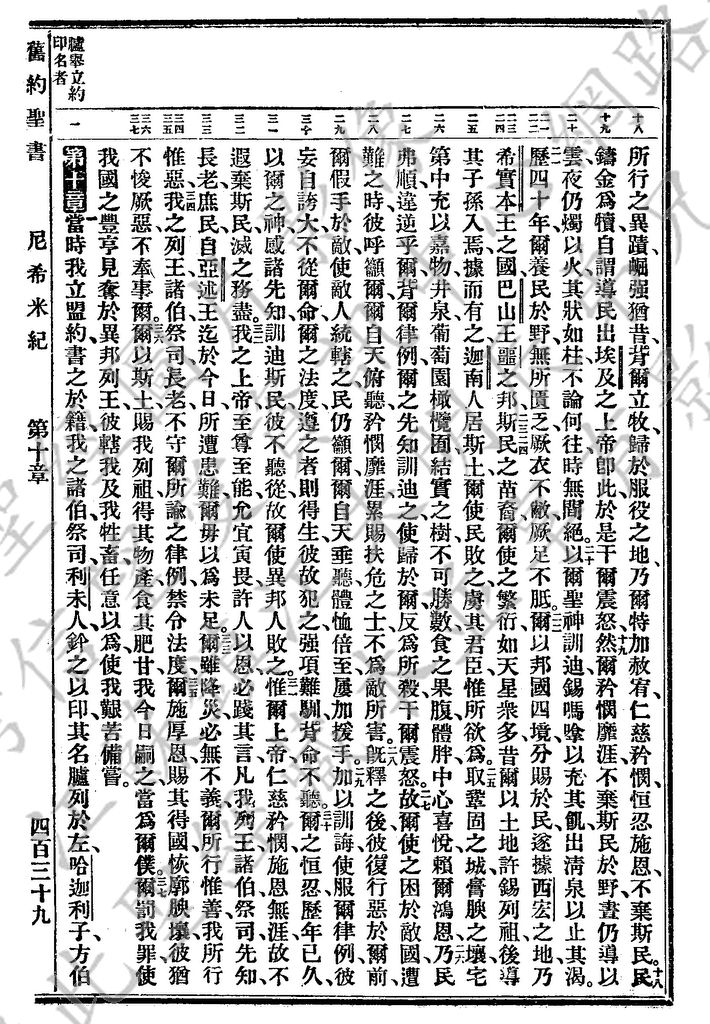 所行之異蹟崛强猶昔背爾立牧歸於服役之地乃爾特加赦宥仁慈矜憫恒忍施恩不棄斯民民
鑄金爲犢自謂導民出埃及之上帝卽此於是干爾震怒然爾矜憫靡涯不棄斯民於野晝仍導以
雲夜仍燭以火其狀如柱不論何往時無間絕以爾聖神訓迪錫嗎嗱以充其飢出淸泉以止其渴
歷四十年爾養民於野無所匱乏厥衣不敝厥足不胝爾以邦國四境分賜於民遂據西宏之地乃
希實本王之國巴山王噩之邦斯民之苗裔爾使之繁衍如天星衆多昔爾以土地許錫列祖後導
其子孫入焉據而有之迦南人居斯土爾使民敗之虜其君臣惟所欲爲取鞏固之城膏腴之壤宅
第中充以嘉物井泉葡萄園橄欖園結實之樹不可勝數食之果腹體胖中心喜悅賴爾鴻恩乃民
弗順違逆乎爾背爾律例爾之先知訓迪之使歸於爾反爲所殺干爾震怒故爾使之困於敵國遭
難之時彼呼籲爾爾自天俯聽矜憫靡涯累賜扶危之士不爲敵所害旣釋之後彼復行惡於爾前
爾假手於敵使敵人統轄之民仍籲爾爾自天垂聽體恤倍至屢加援手加以訓誨使服爾律例彼
妄自誇大不從爾命爾之法度遵之者則得生彼故犯之强項難馴背命不聽爾之恒忍歷年已久
以爾之神感諸先知訓迪斯民彼不聽從故爾使異邦人敗之惟爾上帝仁慈矜憫施恩無涯故不
遐棄斯民滅之務盡我之上帝至尊至能允宜寅畏許人以恩必踐其言凡我列王諸伯祭司先知
長老庶民自亞述王迄於今日所遭患難爾毋以爲未足爾雖降災必無不義爾所行惟善我所行
惟惡我之列王諸伯祭司長老不守爾所諭之律例禁令法度爾施厚恩賜其得國恢廓腴壤彼猶
不悛厥惡不奉事爾爾以斯土賜我列祖得其物產食其肥甘我今日嗣之當爲爾僕爾罰我罪使
我國之豐亨見奪於異邦列王彼轄我及我牲畜任意以爲使我艱苦備嘗
第十章當時我立盟約書之於籍我之諸伯祭司利未人鈐之以印其名臚列於左哈迦利子方伯
臚舉立約
印名者
舊約聖書 尼希米紀 第十章 四百三十九